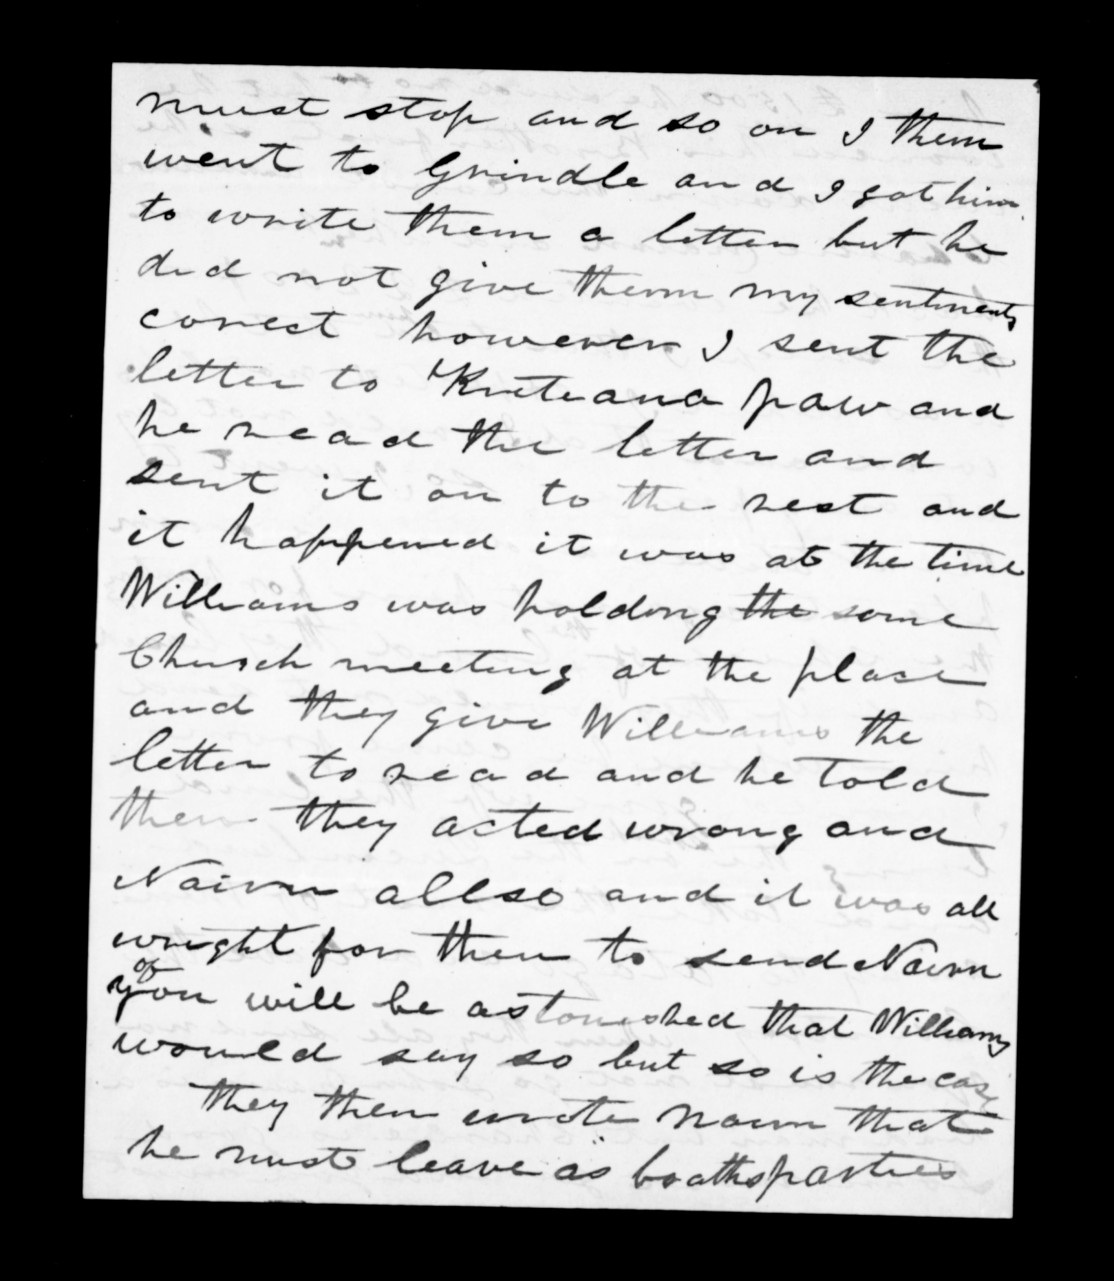 must stop and so on I them
went to Grindle and I got him
to write them a letter but he
did not give them my sentiments
corest however I sent the
letter to Kuteana paw and
he read the letter and
sent it on to the rest and
it happened it was at the time
Williams was holdong the some
Church meeting at the place
and they give Williams the
letter to read and he told
them they acted wrong and
Nairn allso and it was all
wright for them to send Nairn
of
you will be astoneshed that Williams
would say so but so is the case
they then wrote Nairn that
he must leave as boaths parties